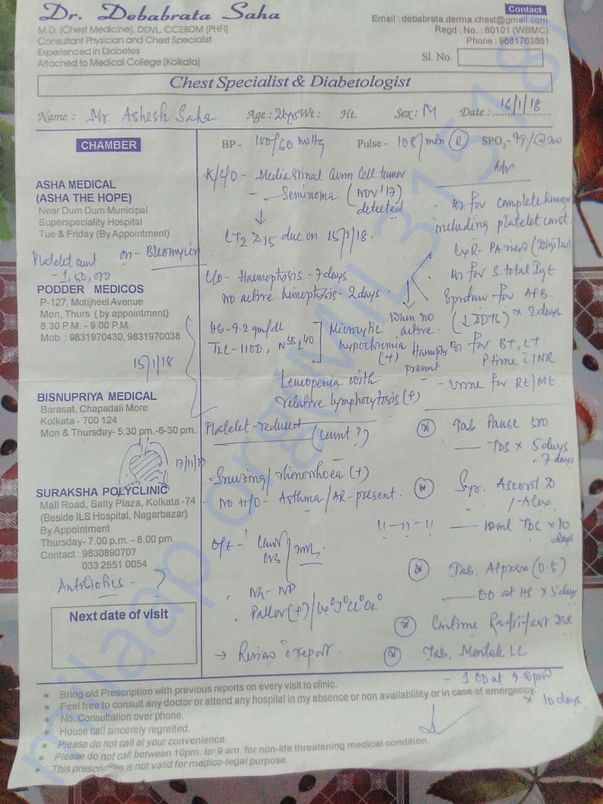 Dr. Debabrata Saha
M.D. (Chest Medicine), DDVL, CCEBDM (PHFI)
Consultant Physician and Chest Specialist
Experienced in Diabetes
Attached to Medical College (Kolkata)
Contact
Email : debabrata.derma.chest@gmail.com
Regd. No. : 60101 (WBMC)
Phone : 9681763881
Sl. No.
Chest Specialist & Diabetologist
Name : Mr. Ashesh Saha Age : Wt : Ht. Sex : M Date :
CHAMBER
ASHA MEDICAL
(ASHA THE HOPE)
Near Dum Dum Municipal
Superspeciality Hospital
Tue & Friday (By Appointment)
Platelet count on - Bleomycin
- 1,50,000
PODDER MEDICOS
P-127, Motijheel Avenue
Mon, Thurs ( by appointment)
8.30 P.M. - 9.00 P.M.
Mob : 9831970430, 9831970038
15/1/18
BISNUPRIYA MEDICAL
Barasat, Chapadali More
Kolkata - 700 124
Mon & Thursday- 5.30 pm.-6-30 pm.
SURAKSHA POLYCLINIC
Mall Road, Satty Plaza, Kolkata -74
(Beside ILS Hospital, Nagarbazar)
By Appointment
Thursday- 7.00 p.m. - 8.00 pm.
Contact : 9830890707
033 2551 0054
Next date of visit
BP - 100/60 mmHg Pulse - 108/min (R) SPO2
Adv
K/C/O - Mediastinal Germ Cell tumor
- Seminoma (Nov'17)
detected
↓
D15 due on 15/1/18.
C/o - Haemoptosis - 7 days
No active hemoptosis - 2 days.
Hb - 9.2 gm/dl
TLC - 1100, N55 L40
Microcytic
hypochromia
(+)
Leucopenia with
relative lymphocytosis (+)
Platelet - reduced (count?)
rhinorrhoea (+)
No H/O - Asthma/AR - present.
O/E -
Pallor (+)
→ Review c report.
including platelet count.
for S. total IgE
Sputum for AFB
x 2 days
for BT, CT
P time c INR
- Urine for RE/ME.
Tab Pause 500
- TDS x 5 days
- 7 days
Syp. Ascoril D
- 10ml TDS x 10
days
Tab. Alprax (0.5)
- OD at HS x 5 days
Tab. Montek LC
- 1 OD at 9 pm
x 10 days
Bring old Prescription with previous reports on every visit to clinic.
Feel free to consult any doctor or attend any hospital in my absence or non availability or in case of emergency.
No. Consultation over phone.
House call sincerely regretted.
Please do not call at your convenience.
Please do not call between 10pm. to 9 am. for non-life threatening medical condition.
This prescription is not valid for medico-legal purpose.